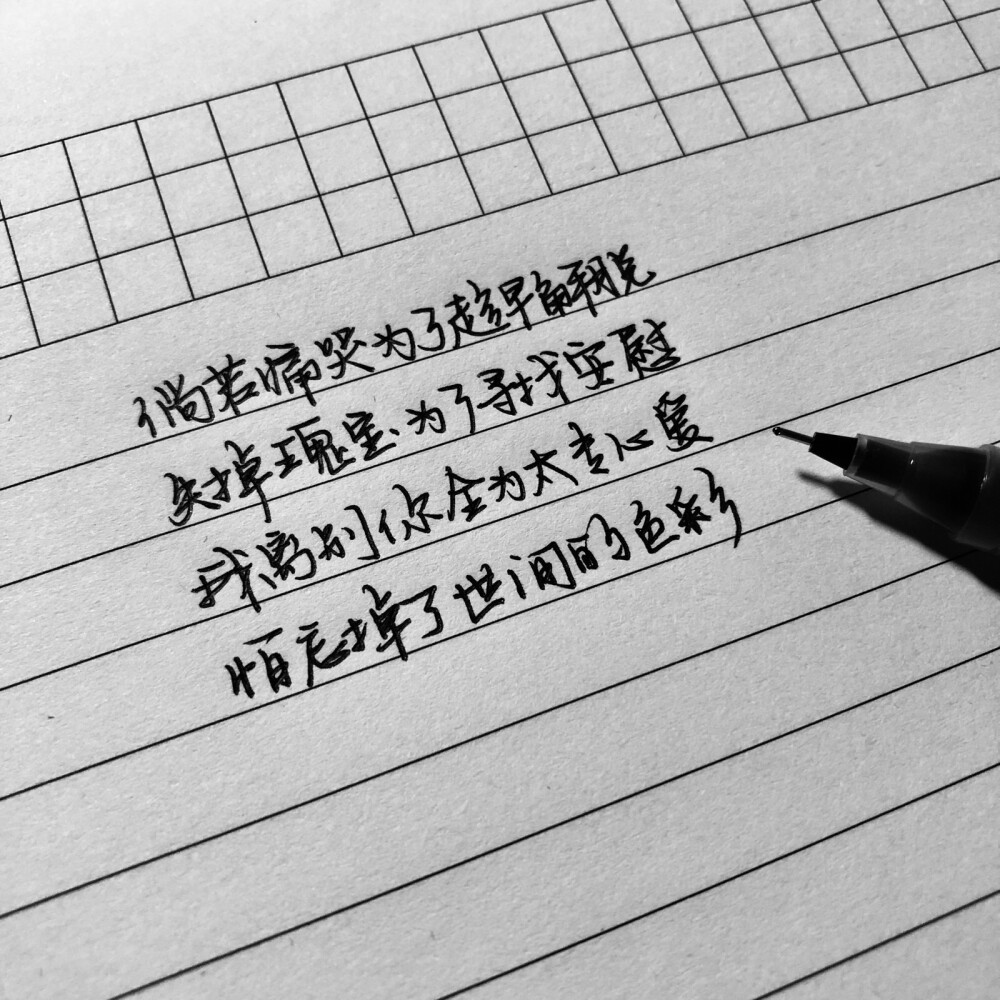 倘若痛哭为了趁早解脱
失掉瑰宝为了寻找安慰
我离别你全为太专心爱
怕忘掉了世间的色彩